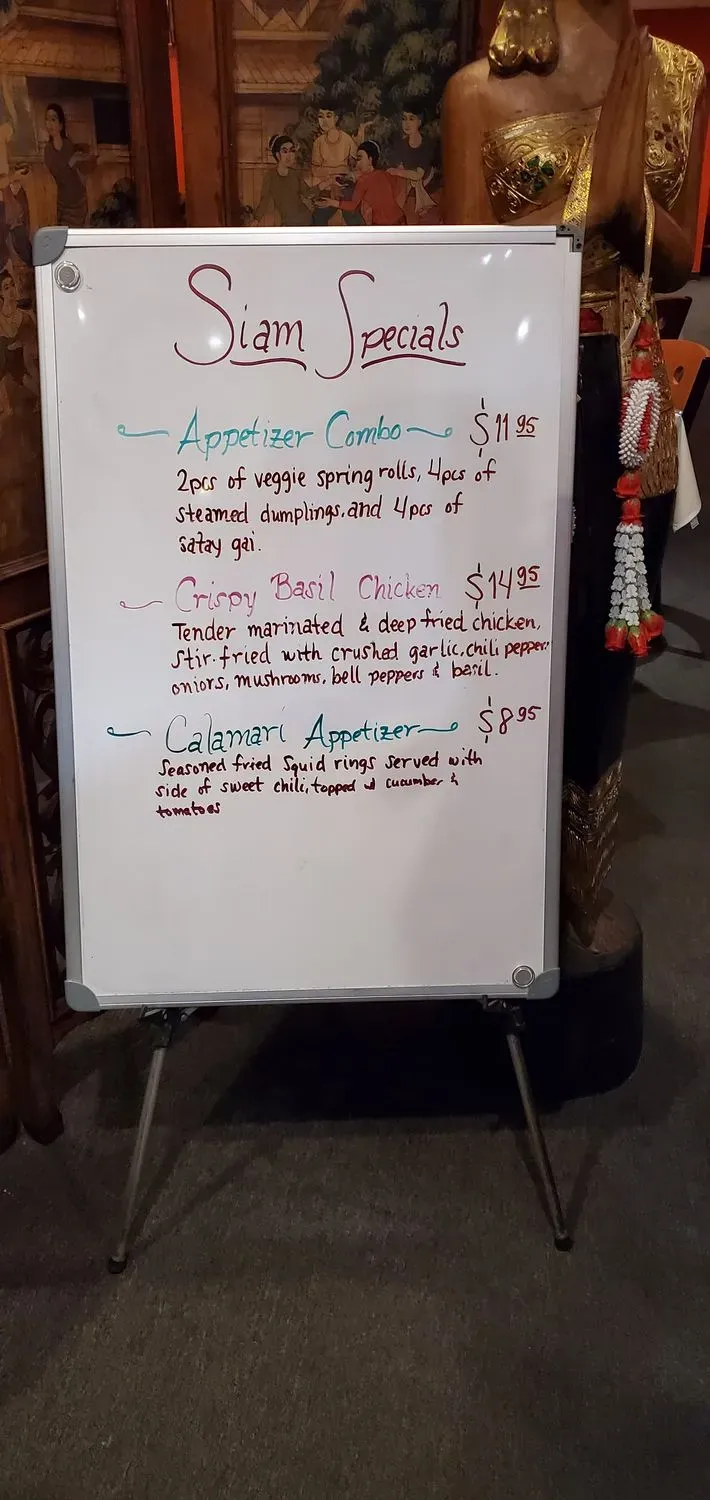 Siam Specials
Appetizer Combo $11 95
2pcs of veggie spring rolls, 4pcs of
steamed dumplings, and 4pcs of
satay gai.
Crispy Basil Chicken $14 95
Tender marinated & deep fried chicken,
stir-fried with crushed garlic, chili pepper,
onions, mushrooms, bell peppers & basil.
Calamari Appetizer $8 95
Seasoned fried squid rings served with
side of sweet chili, topped w cucumber &
tomatoes